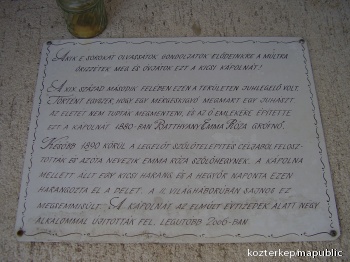 AKIK E SOROKAT OLVASSÁTOK, GONDOLJATOK ELŐDEINKRE A MÚLTRA
ŐRIZZÉTEK MEG ÉS ÓVJÁTOK EZT A KICSI KÁPOLNÁT!
A XIX. SZÁZAD MÁSODIK FELÉBEN EZEN A TERÜLETEN JUHLEGELŐ VOLT.
TÖRTÉNT EGYSZER, HOGY EGY MÉRGESKÍGYÓ MEGMART EGY JUHÁSZT
AZ ÉLETÉT NEM TUDTÁK MEGMENTENI, ÉS AZ Ő EMLÉKÉRE ÉPÍTETTE
EZT A KÁPOLNÁT 1880-BAN BATTHYÁNY EMMA RÓZA GRÓFNŐ.
KÉSŐBB 1890 KÖRÜL A LEGELŐT SZŐLŐTELEPÍTÉS CÉLJÁBÓL FELOSZ-
TOTTÁK ÉS AZÓTA NEVEZIK EMMA RÓZA SZŐLŐHEGYNEK. A KÁPOLNA
MELLETT ÁLLT EGY KICSI HARANG ÉS A HEGYŐR NAPONTA EZEN
HARANGOZTA EL A DELET. A II. VILÁGHÁBORÚBAN SAJNOS EZ
MEGSEMMISÜLT. A KÁPOLNÁT AZ ELMÚLT ÉVTIZEDEK ALATT NÉGY
ALKALOMMAL ÚJÍTOTTÁK FEL, LEGUTÓBB 2006-BAN.
kozterkep/mapublic